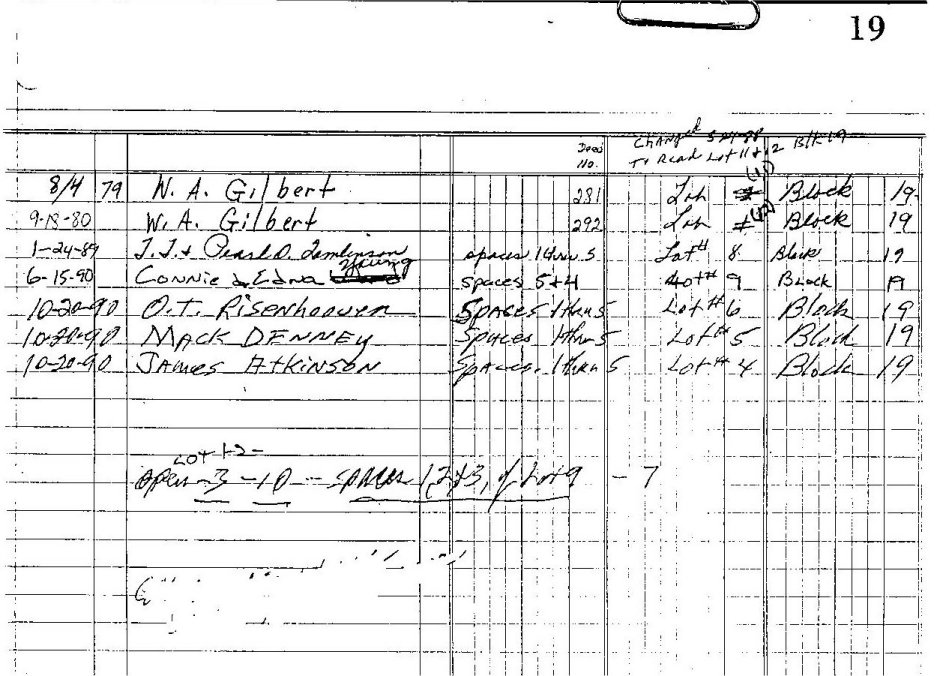 19
Deed No.
Changed
To Read Lot 11 & 12 Blk 19
8/4 79 W. A. Gilbert 281 Lot (11) Block 19
9-18-80 W. A. Gilbert 292 Lot (12) Block 19
1-24-89 J.J. & Pearl D. Tomlinson spaces 1 thru 5 Lot# 8 Block 19
Young
6-15-90 Connie & Edna spaces 5+4 Lot# 9 Block 19
10-20-90 O.T. Risenhoover Spaces 1 thru 5 Lot# 6 Block 19
10-20-90 Mack DENNEY Spaces 1 thru 5 Lot# 5 Block 19
10-20-90 James Atkinson Spaces 1 thru 5 Lot# 4 Block 19
Lot 1-2-
open -3 -10 - spaces 1,2+3, of Lot 9 - 7